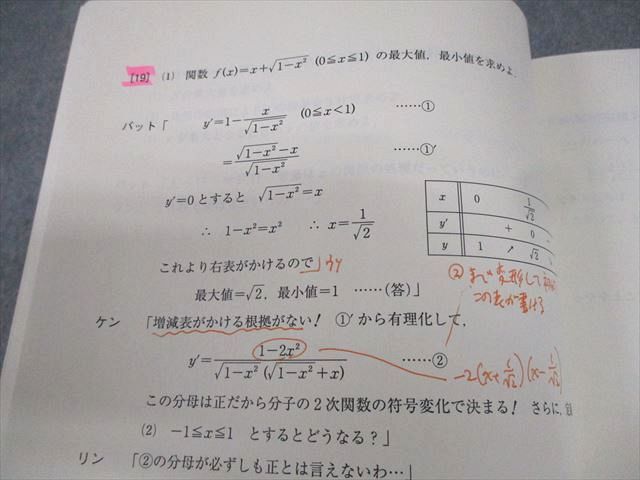 [19] (1) 関数 f(x)=x+√1-x² (0≦x≦1) の最大値,最小値を求めよ.
バット「 y'=1-x/√1-x² (0≦x<1) ……①
=√1-x²-x/√1-x² ……①'
y'=0とすると √1-x²=x
∴ 1-x²=x² ∴ x=1/√2
x 0 1/√2
y' + 0
y 1 ↗ √2
これより右表がかけるので
最大値=√2, 最小値=1 ……(答)」
② まで変形して
この表が書ける
ケン 「増減表がかける根拠がない! ①'から有理化して,
y'=1-2x²/√1-x²(√1-x²+x) ……②
-2(x+1/√2)(x-1/√2)
この分母は正だから分子の2次関数の符号変化で決まる! さらに,
(2) -1≦x≦1 とするとどうなる?」
リン 「②の分母が必ずしも正とは言えないわ…」